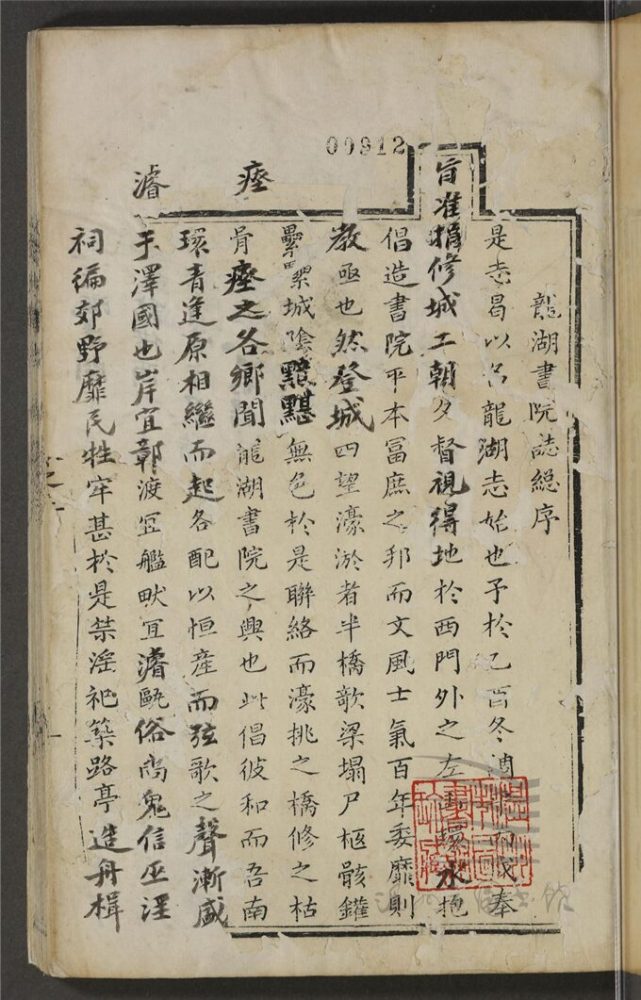 00912
龍湖書院誌緫序
是志曷以名龍湖志始也予於乙酉冬 奉
旨准捐修城工朝夕督視得地於西門外之左 環水抱
倡造書院平本冨庶之邦而文風士氣百年委靡則
教亟也然登城四望濠淤者半橋欹梁塌尸柩骸鑵
纍纍城陰黯黮無色於是聯絡而濠挑之橋修之枯
骨瘞之各鄉聞龍湖書院之興也此倡彼和而吾南
環青逢原相繼而起各配以恒產而弦歌之聲漸盛
于澤國也岸宜鄣渡宜艦畎宜濬甌俗尚鬼信巫淫
祠徧郊野靡民牲牢甚於是禁淫祀築路亭造舟楫
瘞
濬